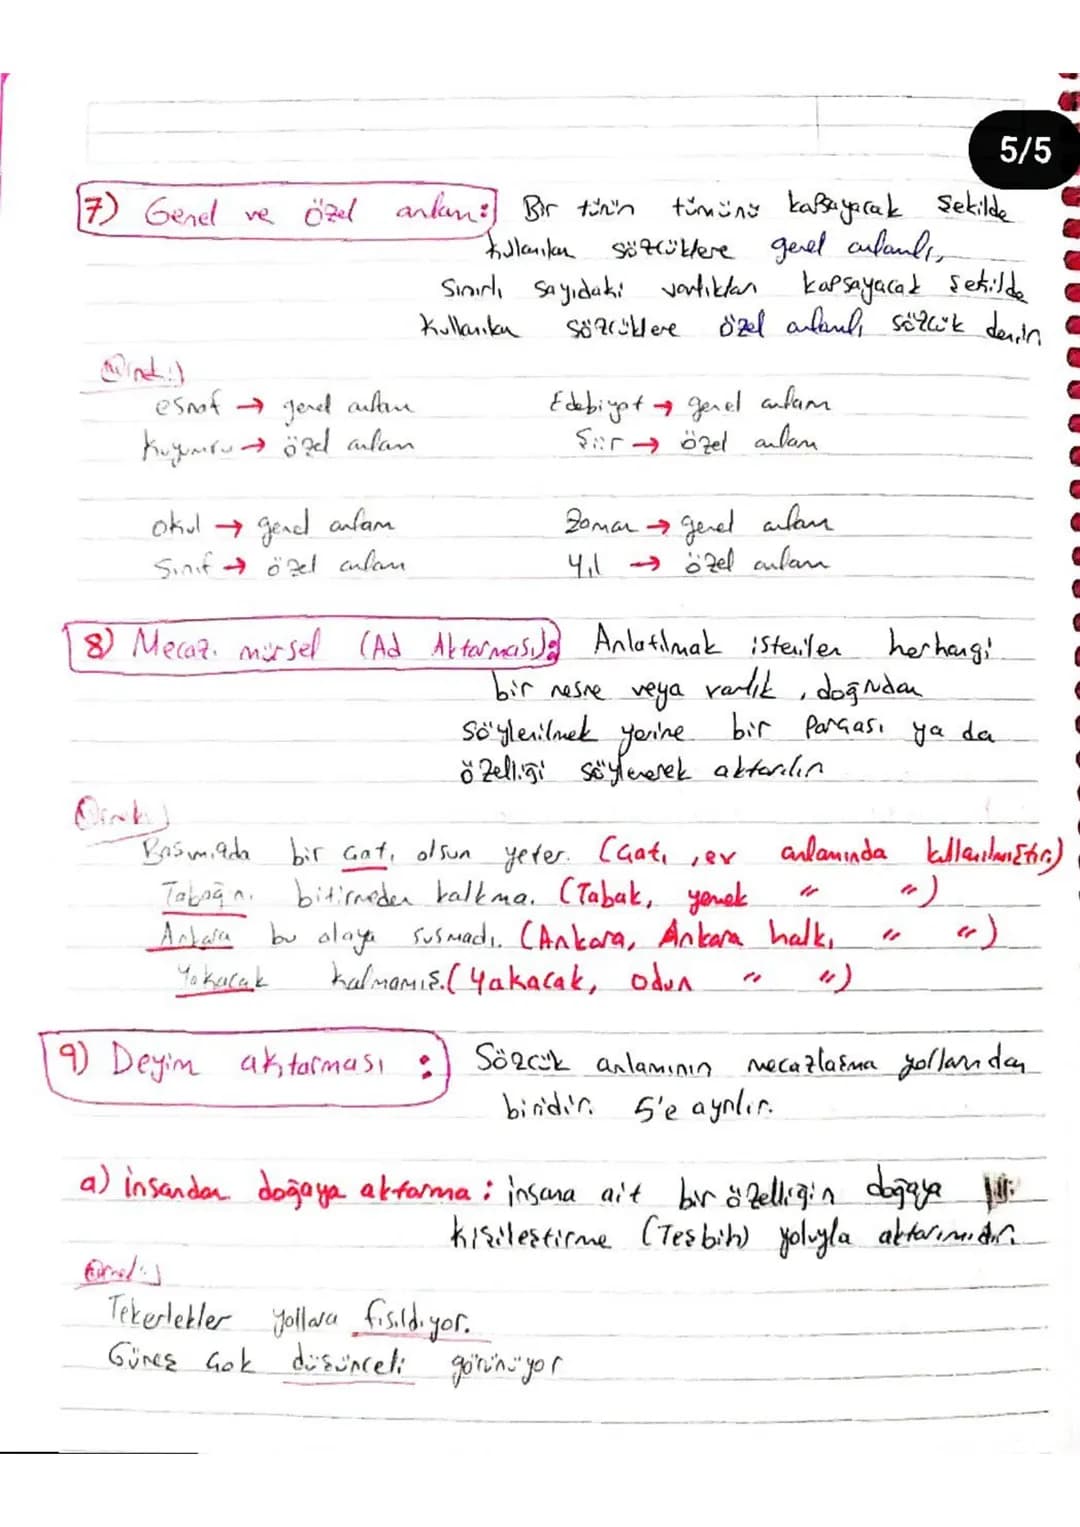 5/5
7) Genel ve özel anlam: Bir türün tümünü kapsayacak şekilde
kullanılan sözcüklere genel anlamlı,
Sınırlı sayıdaki varlıkları kapsayacak şekilde
Kullanılan sözcüklere özel anlamlı sözcük denir
Örnek:)
esnaf → genel anlam
Edebiyat → genel anlam
Kuyumcu → özel anlam
Şiir → özel anlam
Okul → genel anlam
Zaman → genel anlam
Sınıf → özel anlam
Yıl → özel anlam
8) Mecaz. mürsel (Ad Aktarması): Anlatılmak istenilen herhangi
bir nesne veya varlık, doğrudan
söylenilmek yerine bir parçası ya da
özelliği söylenerek aktarılır
Örnek:)
Başımızda bir çatı olsun yeter. (Çatı, ev anlamında kullanılmıştır.)
Tabağını bitirmeden kalkma. (Tabak, yemek " ")
Ankara bu olaya susmadı. (Ankara, Ankara halkı " ")
Yakacak kalmamış. (Yakacak, odun " ")
9) Deyim aktarması : Sözcük anlamının mecazlaşma yollarından
biridir. 5'e ayrılır.
a) İnsandan doğaya aktarma : insana ait bir özelliğin doğaya
kişileştirme (Teşbih) yoluyla aktarımıdır.
Örnek:)
Tekerlekler yollara fısıldıyor.
Güneş çok düşünceli görünüyor